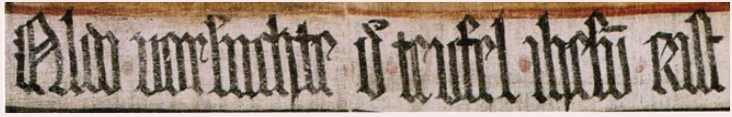 Also vorsuchte d̄ teufel ihesū crist